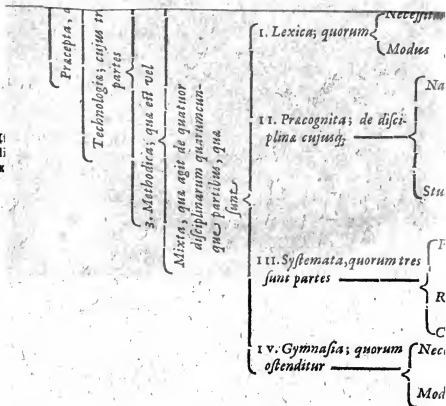 Præcepta,
Technologiæ; cujus
partes
3. Methodica; quæ est vel
Mixta, quæ agit de quatuor
disciplinarum quarumcun-
que partibus, quæ
sunt
I. Lexica; quorum
Necessitas
Modus
II. Præcognita; de disci-
plinæ cujusq;
Na
Stu
III. Systemata, quorum tres
sunt partes
R
C
IV. Gymnasia; quorum
ostenditur
Nece
Mod